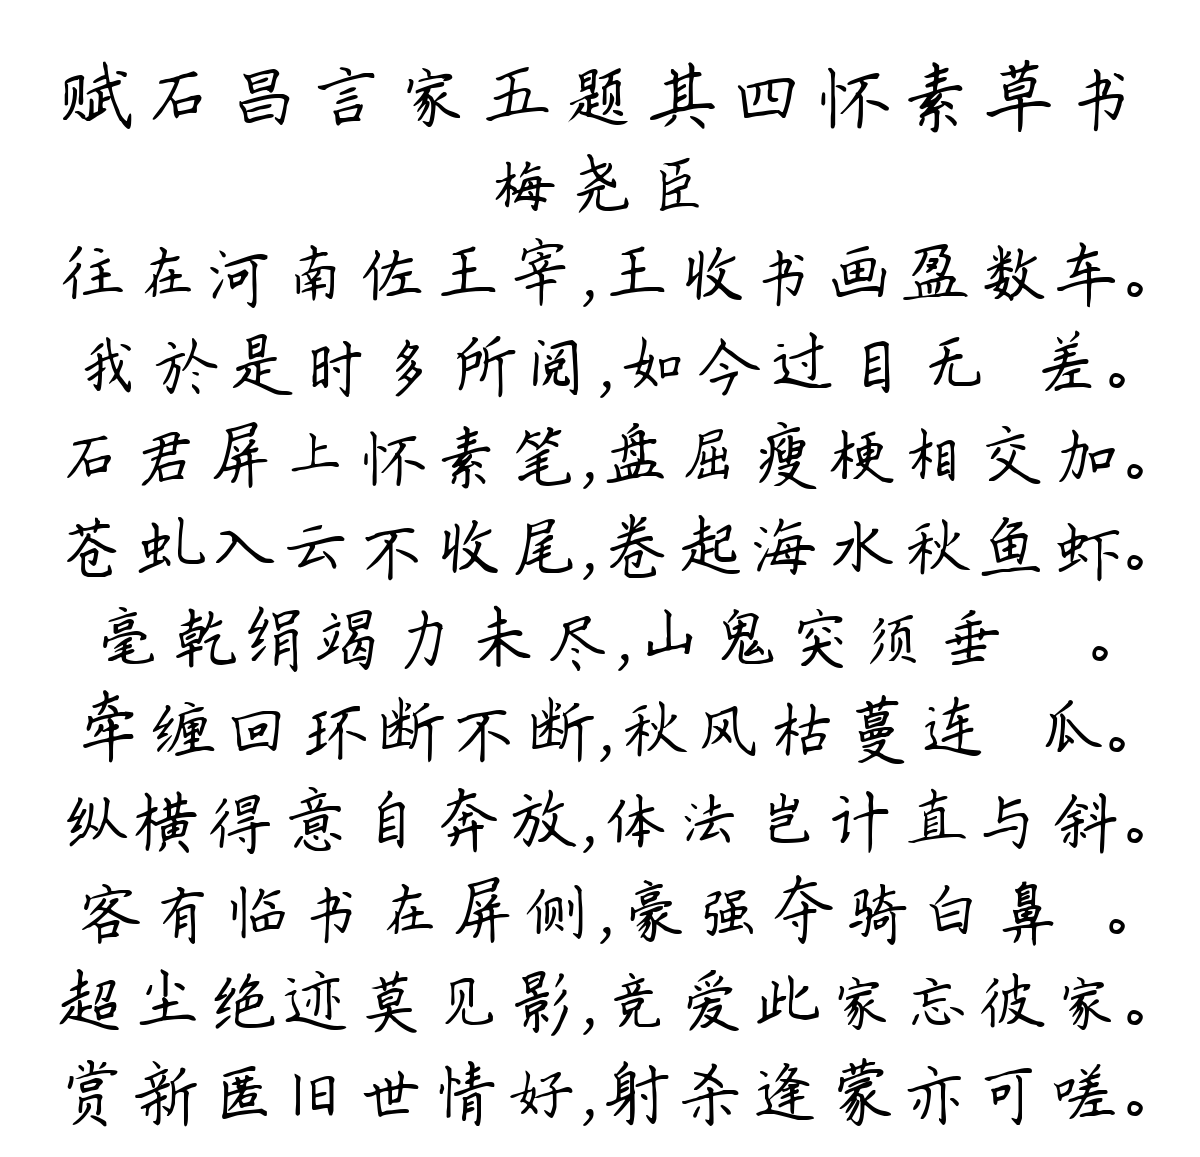 赋石昌言家五题其四怀素草书
梅尧臣
往在河南佐王宰,王收书画盈数车。
我於是时多所阅,如今过目无 差。
石君屏上怀素笔,盘屈瘦梗相交加。
苍虬入云不收尾,卷起海水秋鱼虾。
毫乾绢竭力未尽,山鬼突须垂 。
牵缠回环断不断,秋风枯蔓连 瓜。
纵横得意自奔放,体法岂计直与斜。
客有临书在屏侧,豪强夺骑白鼻 。
超尘绝迹莫见影,竞爱此家忘彼家。
赏新匿旧世情好,射杀逢蒙亦可嗟。